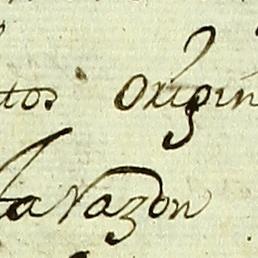 tos origin
la razon